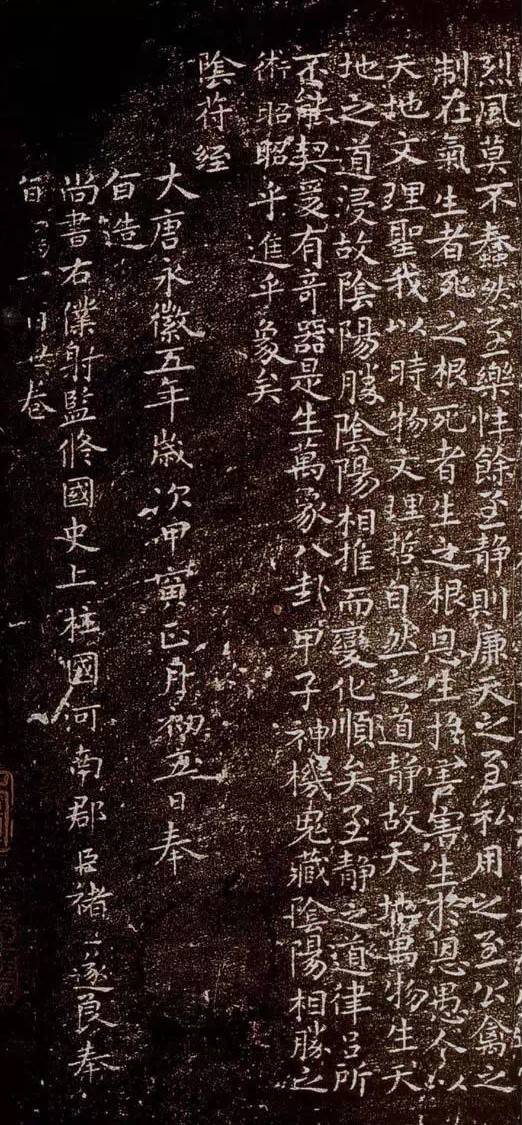 烈風莫不蠢然至樂性餘至静則廉天之至私用之至公禽之
制在氣生者死之根死者生之根恩生於害害生於恩愚人以
天地文理聖我以時物文理哲自然之道静故天地萬物生天
地之道浸故陰陽勝陰陽相推而變化順矣至静之道律呂所
不能契爰有奇器是生萬象八卦甲子神機鬼藏陰陽相勝之
術昭昭乎進乎象矣
陰苻經
大唐永徽五年歲次甲寅正月初五日奉
旨造
尚書右僕射監修國史上柱國河南郡臣褚遂良奉
旨寫一百廿卷